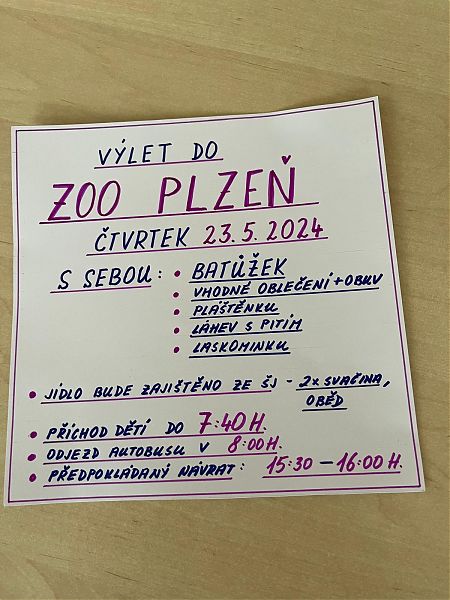 VÝLET DO
ZOO PLZEŇ
ČTVRTEK 23.5.2024
S SEBOU: • BATŮŽEK
• VHODNÉ OBLEČENÍ + OBUV
• PLÁŠTĚNKU
• LÁHEV S PITÍM
• LASKOMINKU
• JÍDLO BUDE ZAJIŠTĚNO ZE ŠJ - 2x SVAČINA,
OBĚD
• PŘÍCHOD DĚTÍ DO 7:40 H.
• ODJEZD AUTOBUSU V 8:00 H.
• PŘEDPOKLÁDANÝ NÁVRAT: 15:30 – 16:00 H.